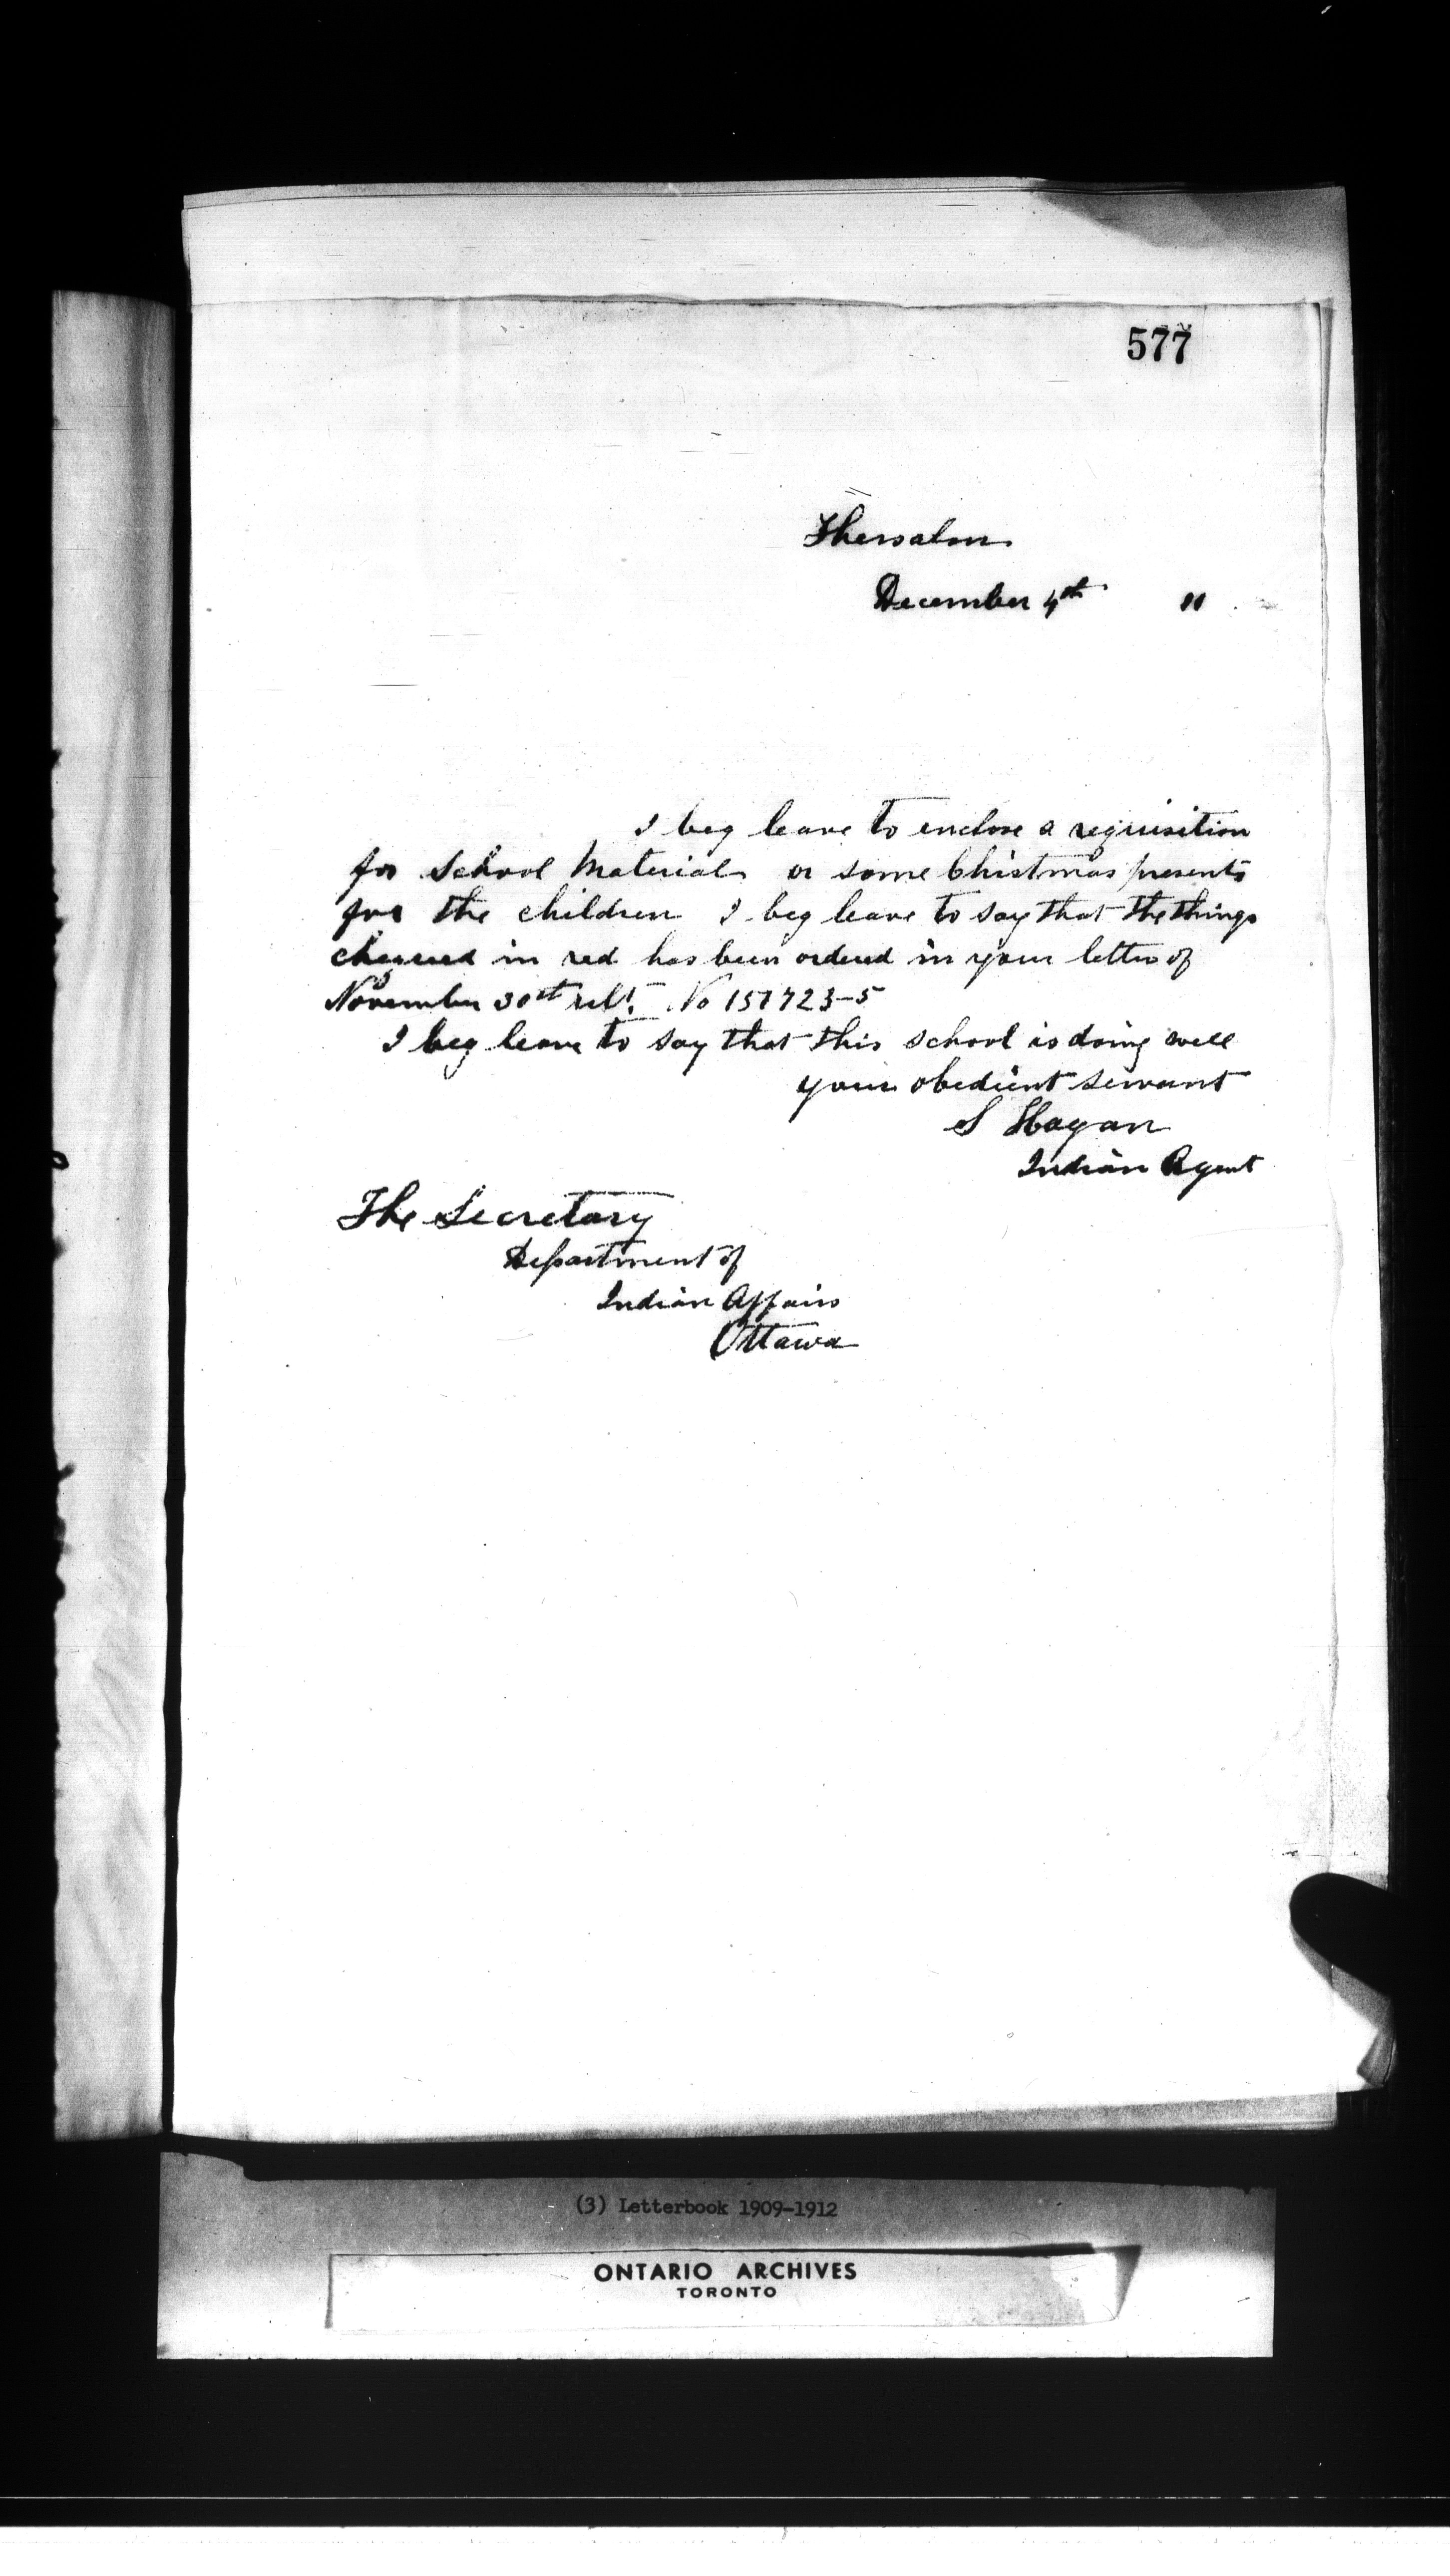 577
Thessalon
December 4th 11
I beg leave to enclose a requisition
for School Material or some Christmas presents
for the children I beg leave to say that the things
in red has been ordered in your letter of
November 30th ult. No 151723-5
I beg leave to say that this school is doing well
your obedient servant
S Hagan
Indian Agent
The Secretary
Department of
Indian Affairs
Ottawa
(3) Letterbook 1909-1912
ONTARIO ARCHIVES
TORONTO